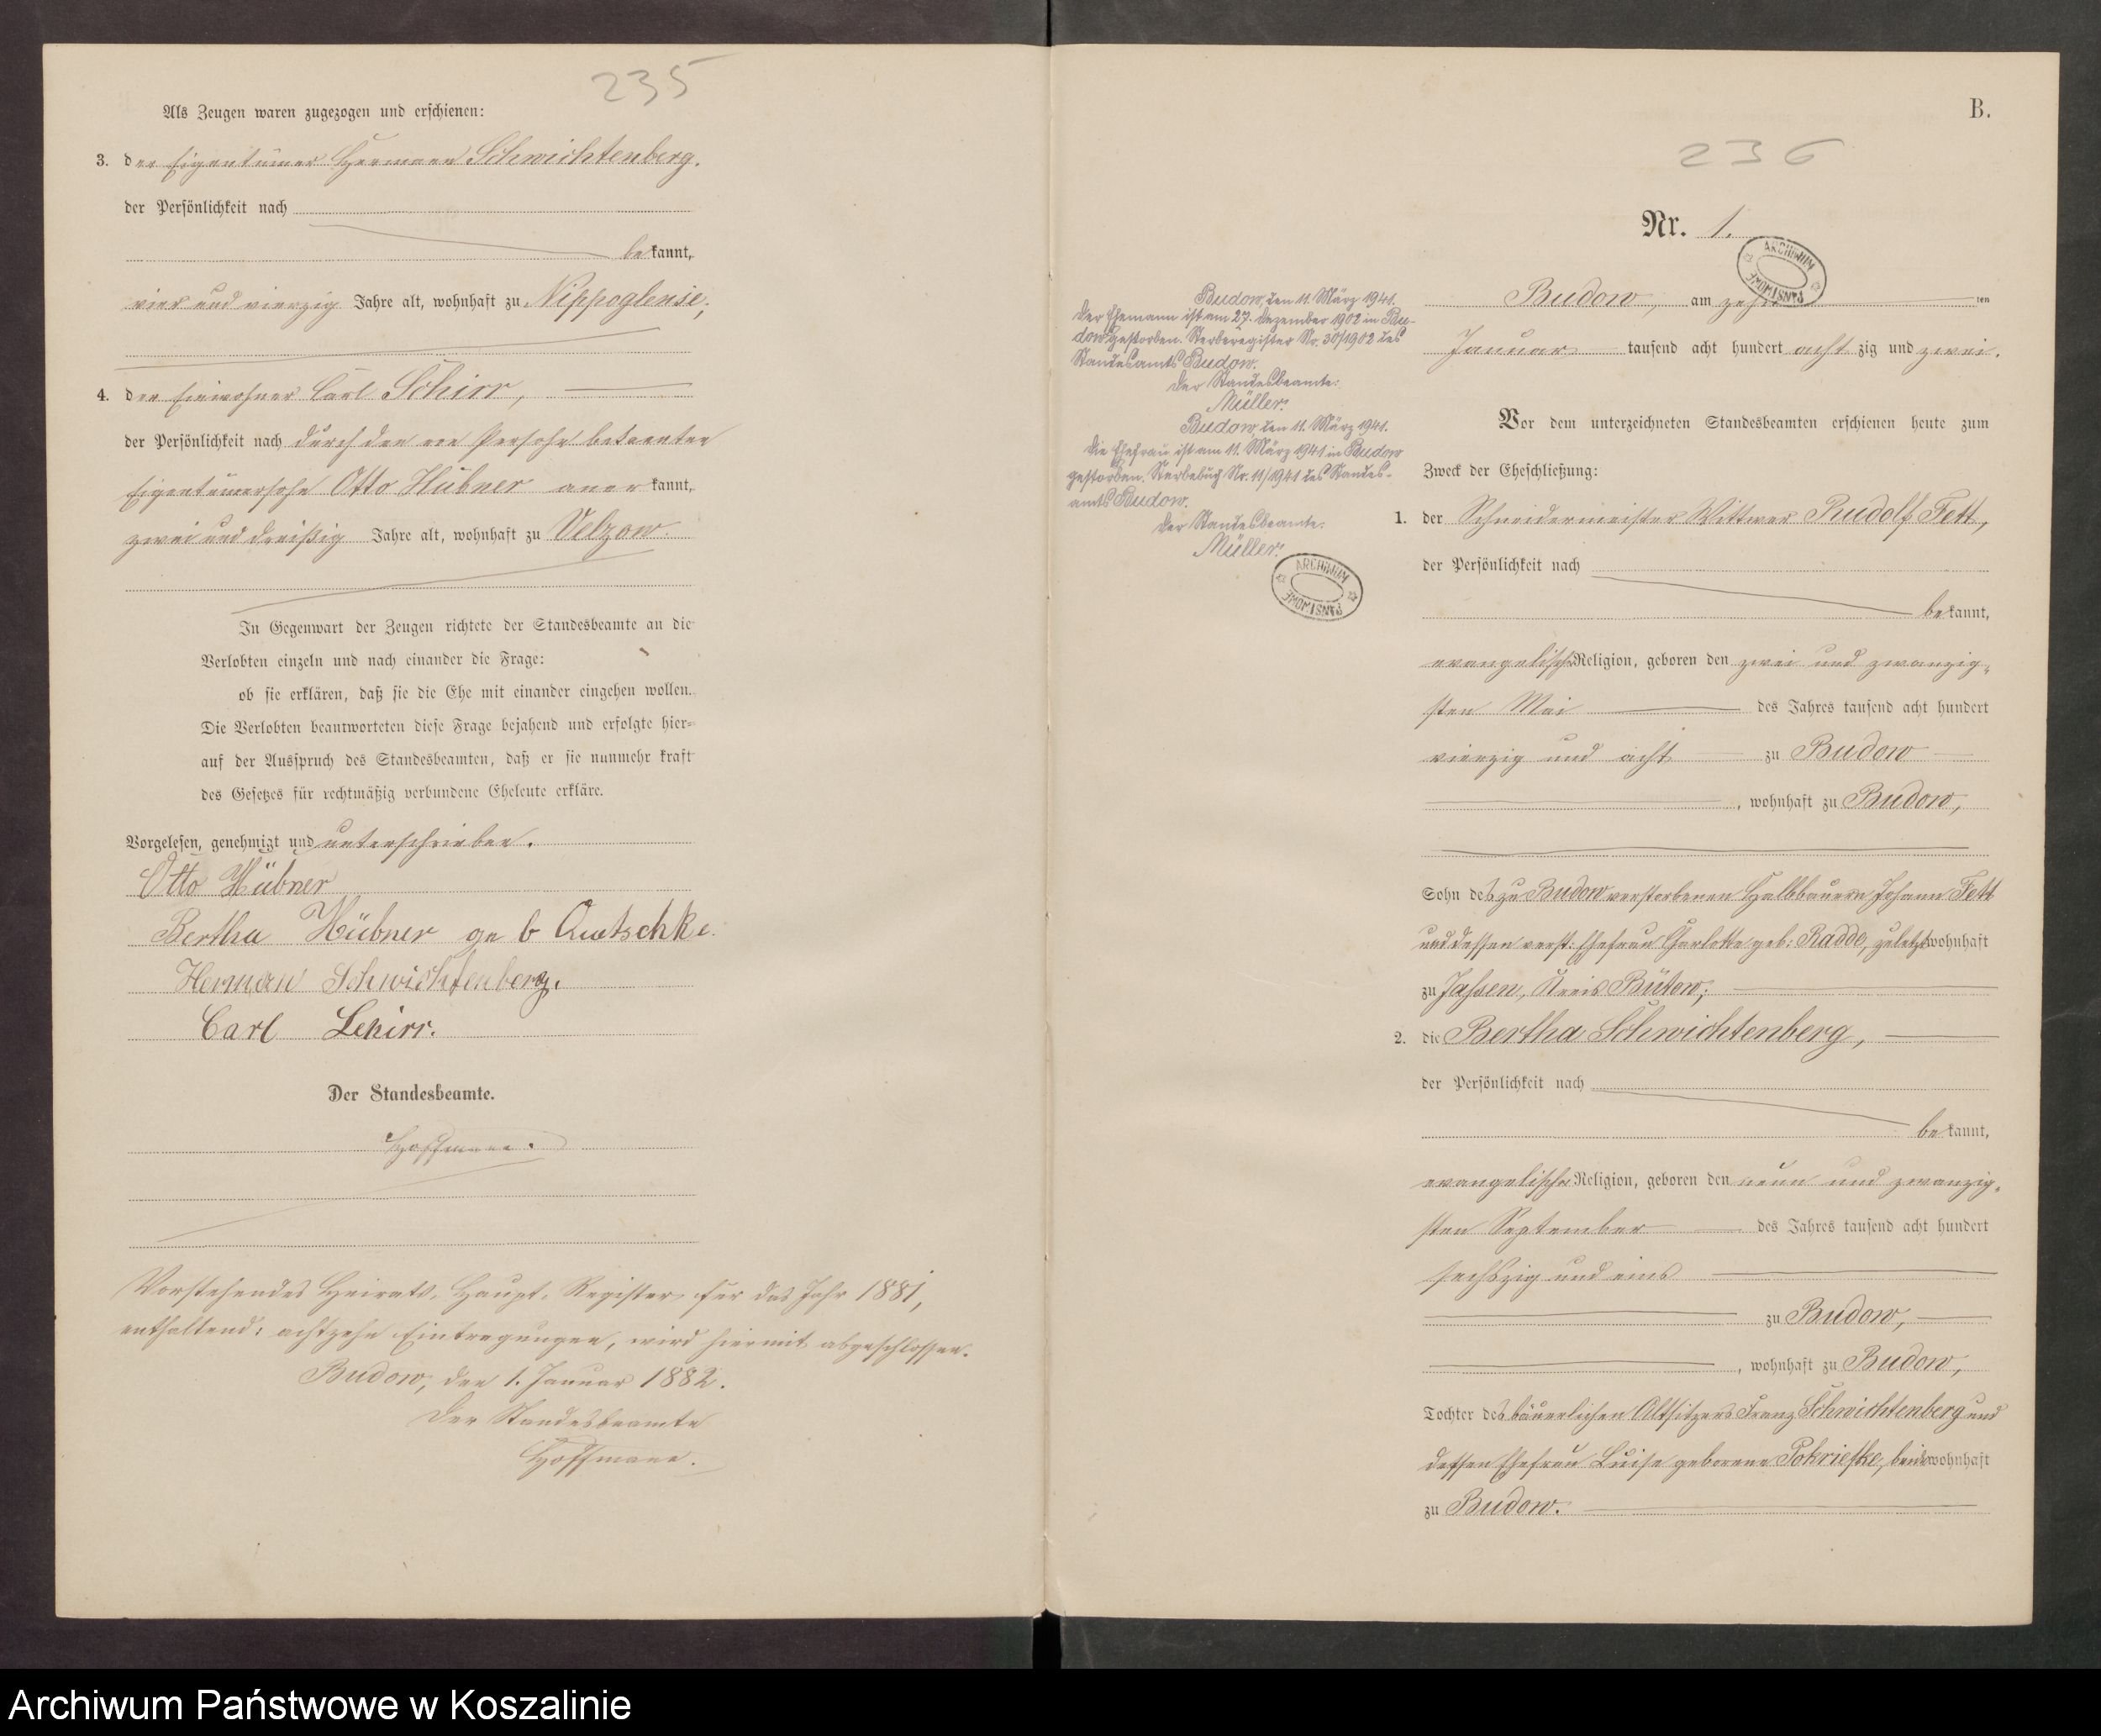 235
Als Zeugen waren zugezogen und erschienen:
3. der Eigentümer Hermann Schwichtenberg.
der Persönlichkeit nach
bekannt,
vier und vierzig Jahre alt, wohnhaft zu Nippoglense;
4. der Einwohner Carl Schirr,
der Persönlichkeit nach durch den von Person bekannten
Eigentümersohn Otto Hübner anerkannt,
zwei und dreißig Jahre alt, wohnhaft zu Velzow.
In Gegenwart der Zeugen richtete der Standesbeamte an die
Verlobten einzeln und nach einander die Frage:
ob sie erklären, daß sie die Ehe mit einander eingehen wollen.
Die Verlobten beantworteten diese Frage bejahend und erfolgte hier-
auf der Ausspruch des Standesbeamten, daß er sie nunmehr kraft
des Gesetzes für rechtmäßig verbundene Eheleute erkläre.
Vorgelesen, genehmigt und unterschrieben.
Otto Hübner
Bertha Hübner geb Quetschke.
Herman Schwichtenberg.
Carl Schirr.
Der Standesbeamte.
Hoffmann.
Vorstehendes Heirats-Haupt-Register für das Jahr 1881,
enthaltend: achtzehn Eintragungen, wird hiermit abgeschlossen.
Budow, den 1. Januar 1882.
Der Standesbeamte
Hoffmann.
B.
236
Nr. 1.
ARCHIWUM PAŃSTWOWE
Budow, am zehnten
Januar tausend acht hundert achtzig und zwei.
Budow, den 11. März 1941.
Der Ehemann ist am 27. Dezember 1902 in Bu-
dow gestorben. Sterberegister Nr. 30/1902 des
Standesamts Budow.
Der Standesbeamte:
Müller.
Budow, den 11. März 1941.
Die Ehefrau ist am 11. März 1941 in Budow
gestorben. Sterbebuch Nr. 11/1941 des Standes-
amts Budow.
Der Standesbeamte:
Müller.
ARCHIWUM PAŃSTWOWE
Vor dem unterzeichneten Standesbeamten erschienen heute zum
Zweck der Eheschließung:
1. der Schneidermeister Wittwer Rudolf Fett,
der Persönlichkeit nach
bekannt,
evangelischer Religion, geboren den zwei und zwanzig-
sten Mai des Jahres tausend acht hundert
vierzig und acht zu Budow
, wohnhaft zu Budow,
Sohn des zu Budow verstorbenen Halbbauern Johann Fett
und dessen verst. Ehefrau Charlotte geb: Radde, zuletzt wohnhaft
zu Jassen, Kreis Bütow;
2. die Bertha Schwichtenberg,
der Persönlichkeit nach
bekannt,
evangelischer Religion, geboren den neun und zwanzig-
sten September des Jahres tausend acht hundert
sechszig und eins
zu Budow,
, wohnhaft zu Budow,
Tochter des bäuerlichen Altsitzers Franz Schwichtenberg und
dessen Ehefrau Luise geborene Pokriefke, beide wohnhaft
zu Budow.
Archiwum Państwowe w Koszalinie